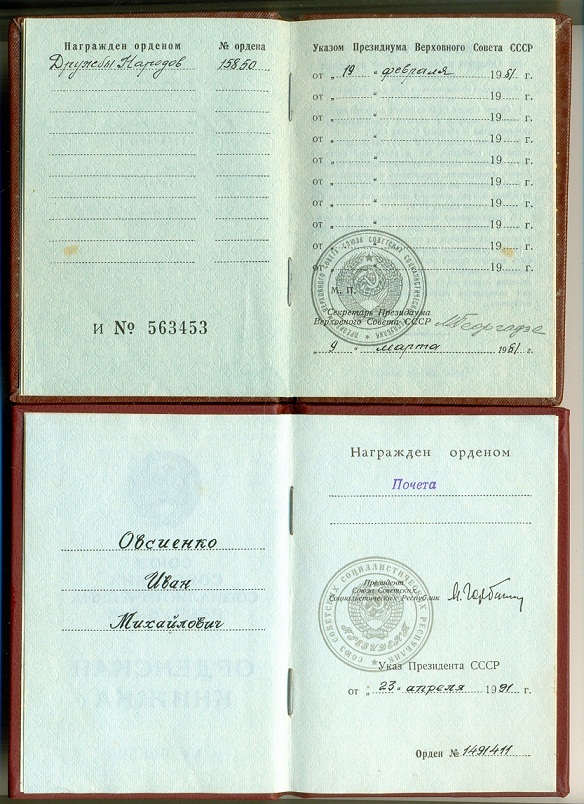 Награжден орденом
№ ордена
Дружбы Народов
15850
Указом Президиума Верховного Совета СССР
от „ 19 “ февраля 1981 г.
от „ “ 19 г.
от „ “ 19 г.
от „ “ 19 г.
от „ “ 19 г.
от „ “ 19 г.
от „ “ 19 г.
от „ “ 19 г.
от „ “ 19 г.
от „ “ 19 г.
М. П.
Секретарь Президиума
Верховного Совета СССР
М Георгадзе
„ 9 “ марта 1981 г.
И № 563453
Овсиенко
Иван
Михайлович
Награжден орденом
Почета
СОЮЗ СОВЕТСКИХ СОЦИАЛИСТИЧЕСКИХ РЕСПУБЛИК
ПРЕЗИДЕНТ
Президент
Союза Советских
Социалистических Республик
М. Горбачев
Указ Президента СССР
от „ 23 “ апреля 1991 г.
Орден № 1491411
ОРДЕНСКАЯ
КНИЖКА